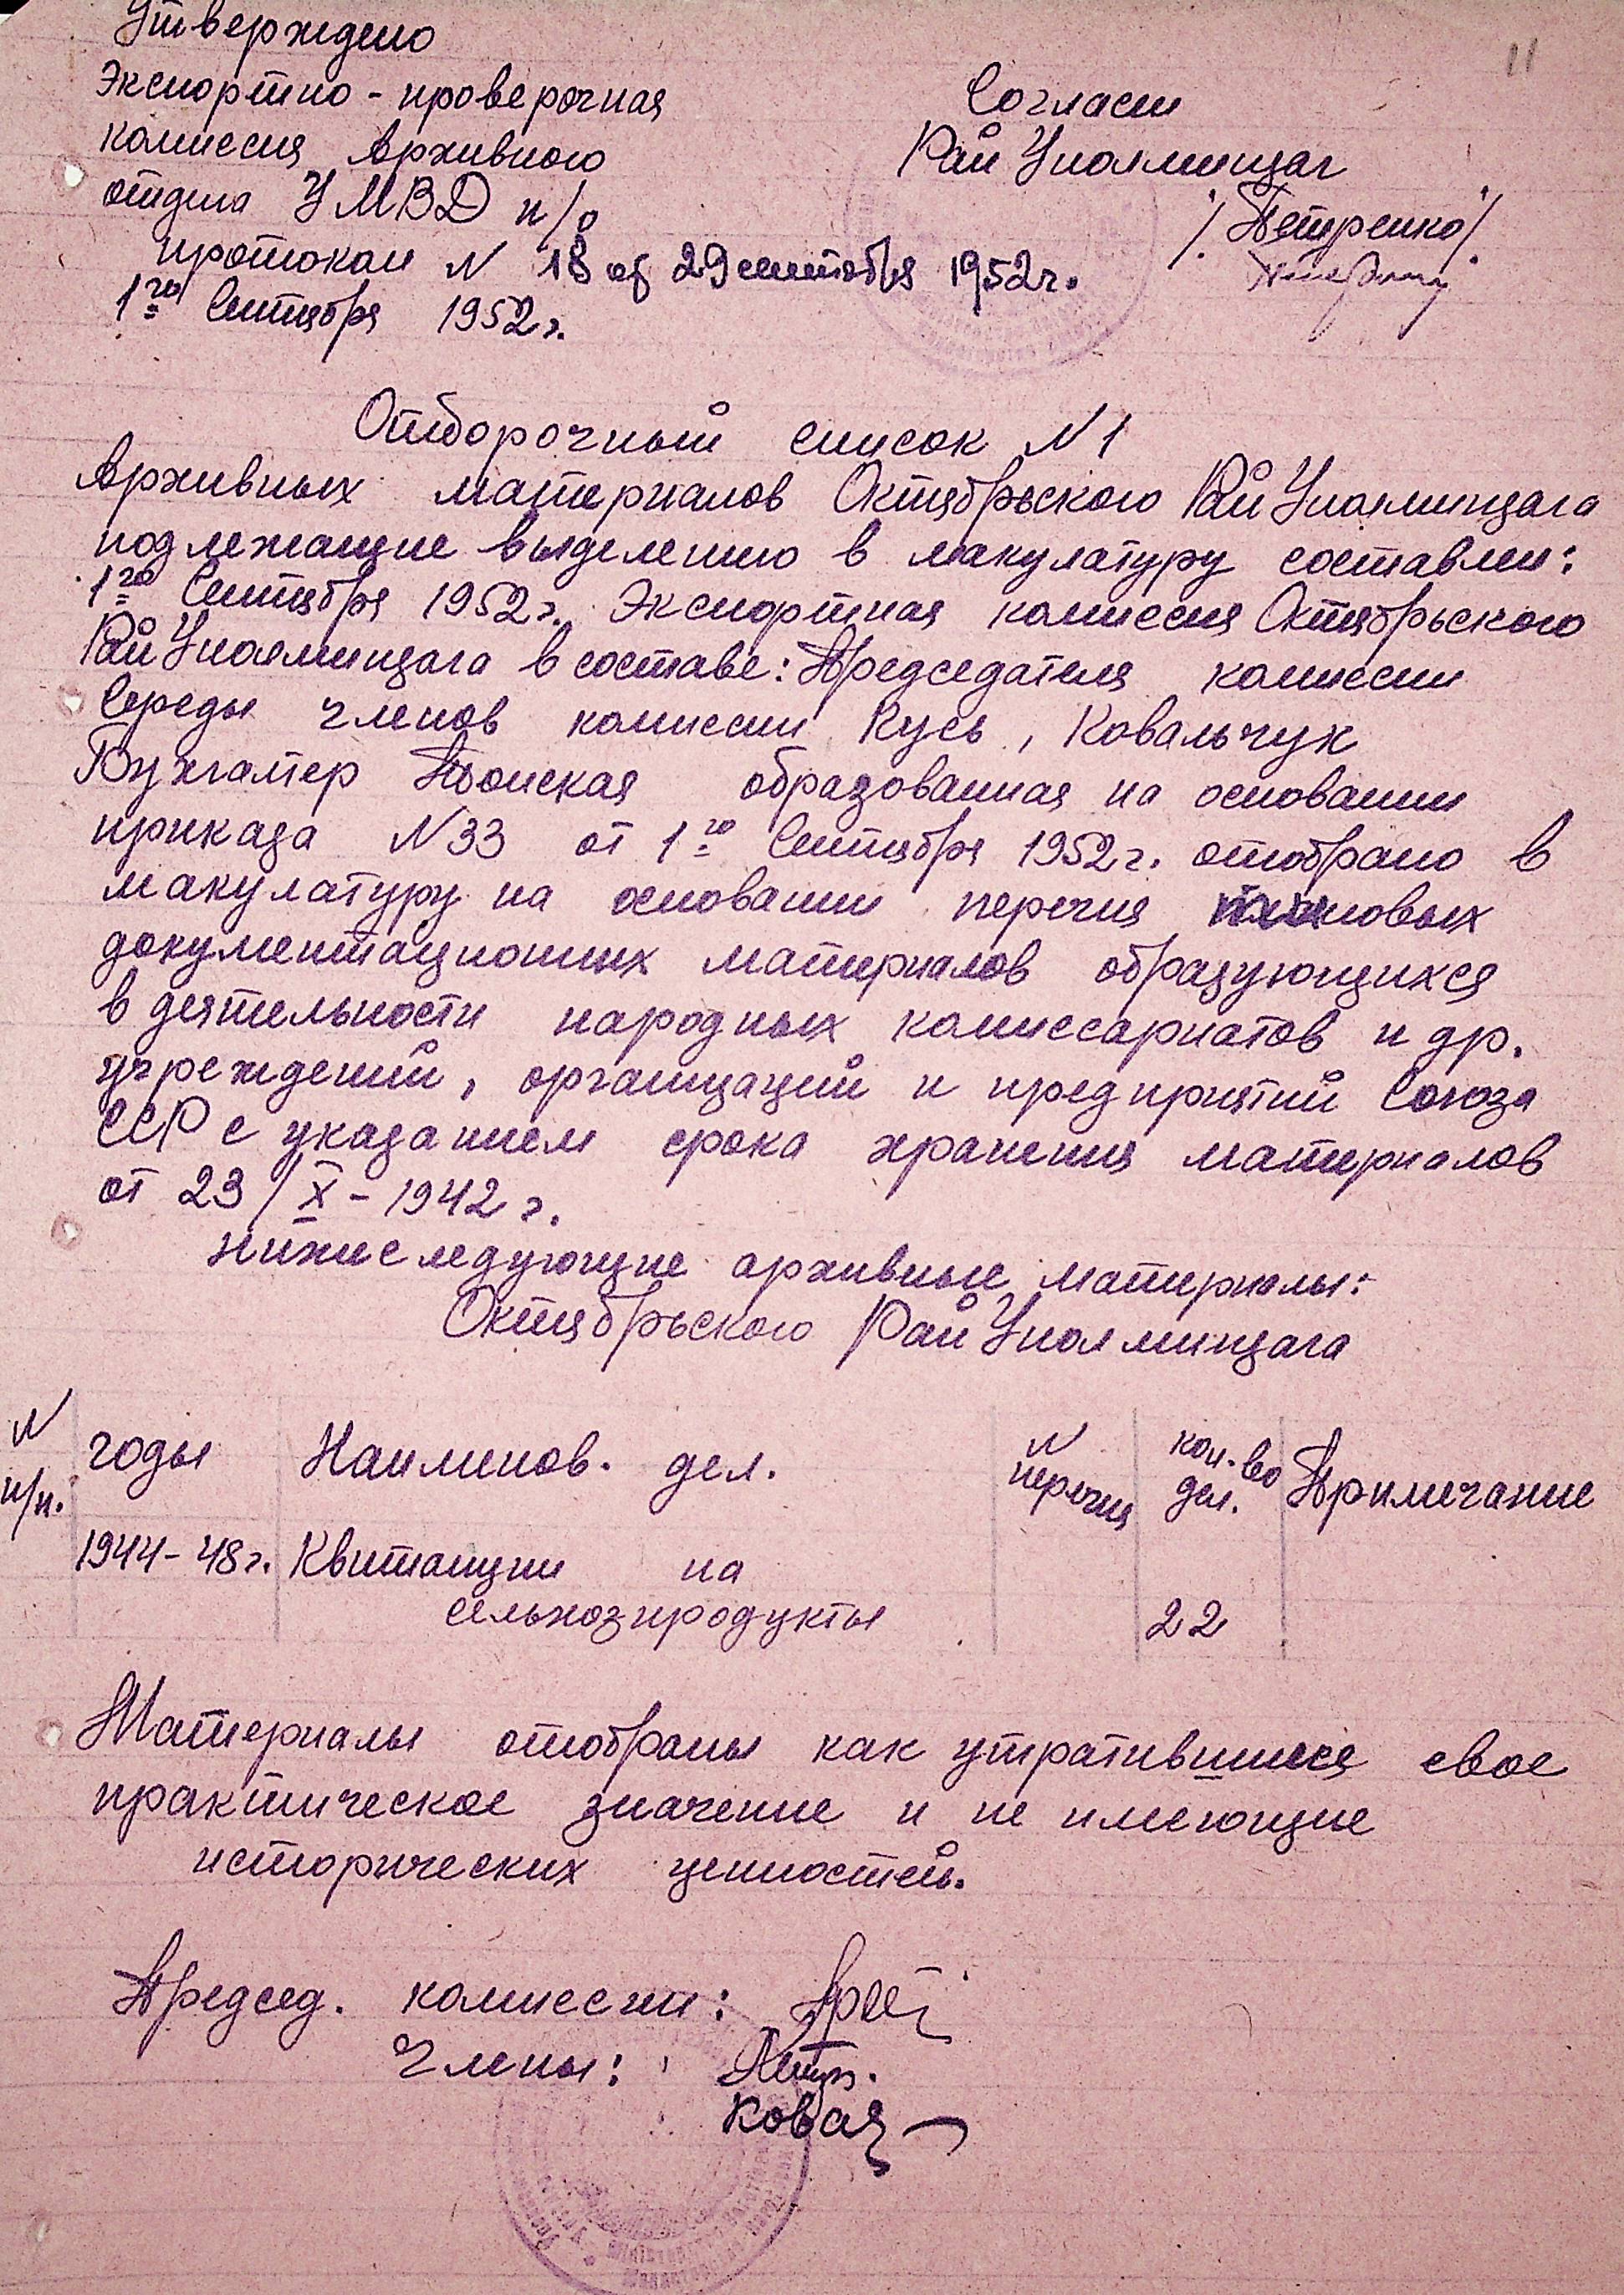 11
Утверждено
Экспортно - проверочная
комиссия Архивного
отдела УМВД п/о
протокол N 18 от 29 сентября 1952 г.
1го Сентября 1952 г.
Согласен
Рай Уполминзаг
/. Петренко /.
Отборочный список N 1
Архивных материалов Октябрьского Рай Уполминзага
подлежащие выделению в макулатуру составлен:
1го Сентября 1952 г. Экспортная комиссия Октябрьского
Рай Уполминзага в составе: Председателя комиссии
Середы членов комиссии Кусь, Ковальчук
Бухгалтер образованная на основании
приказа N 33 от 1го Сентября 1952 г. отобрано в
макулатуру на основании перечня типовых
документационных материалов образующихся
в деятельности народных комиссариатов и др.
учреждений, организаций и предприятий Союза
ССР с указанием срока хранения материалов
от 23 / X - 1942 г.
нижеследующие архивные материалы:
Октябрьского Рай Уполминзага
N п/п. годы Наименов. дел. N перечня кол-во дел. Примечание
1944 - 48 г. Квитанции на
сельхозпродукты 22
Материалы отобраны как утратившиеся свое
практическое значение и не имеющие
исторических ценностей.
Председ. комиссии:
Члены: